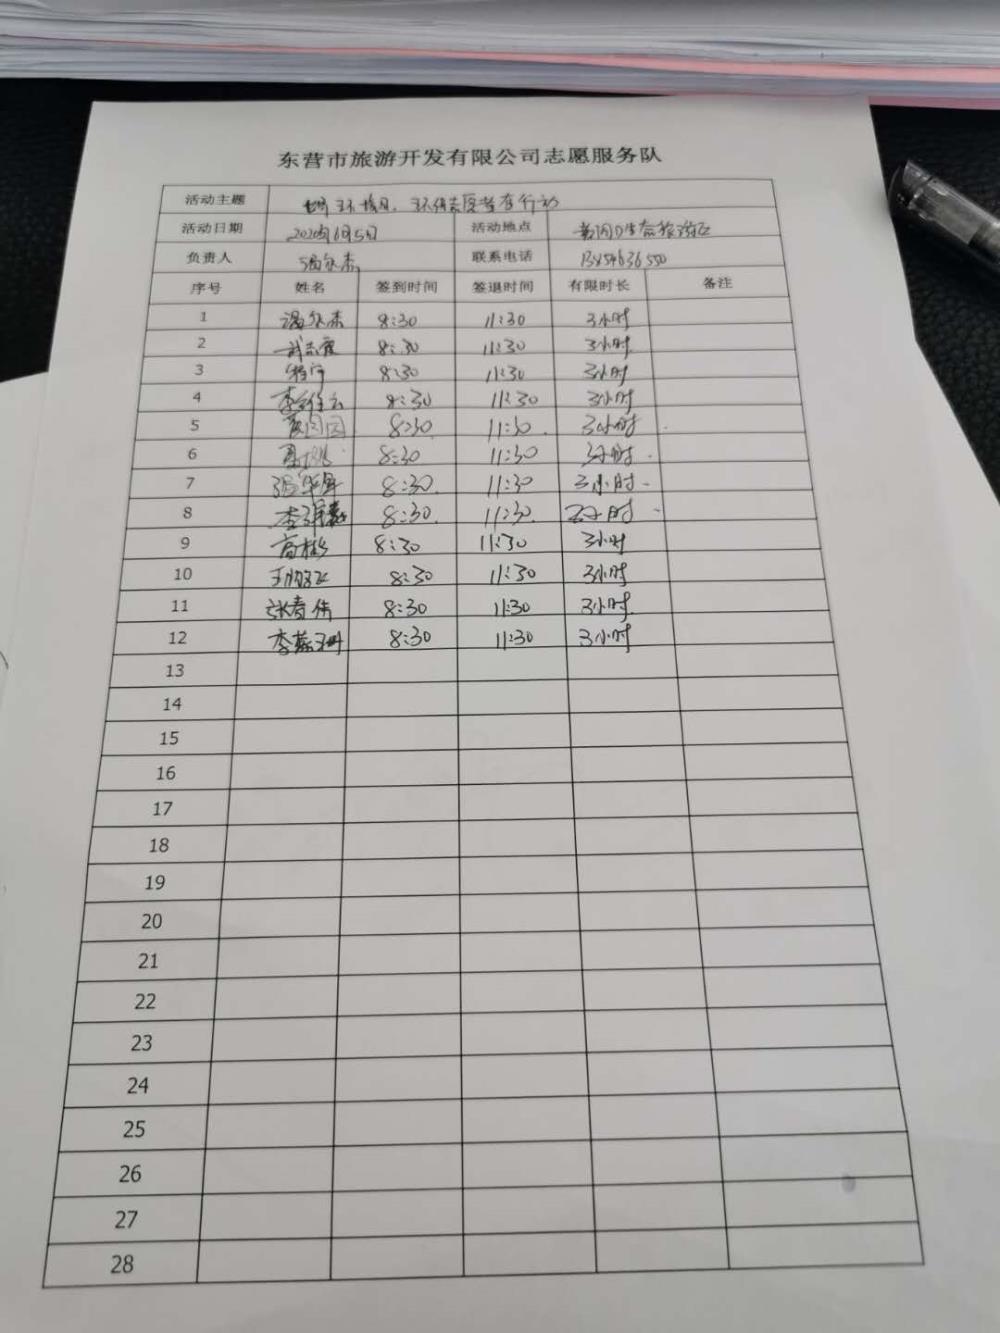 东营市旅游开发有限公司志愿服务队
活动主题 世界环境日，环保志愿者在行动
活动日期 2020年6月5日 活动地点 黄河口生态旅游区
负责人 联系电话
序号 姓名 签到时间 签退时间 有限时长 备注
1 8:30 11:30 3小时
2 8:30 11:30 3小时
3 8:30 11:30 3小时
4 8:30 11:30 3小时
5 8:30 11:30 3小时
6 8:30 11:30 3小时
7 8:30 11:30 3小时
8 8:30 11:30 3小时
9 高彬 8:30 11:30 3小时
10 8:30 11:30 3小时
11 张春伟 8:30 11:30 3小时
12 8:30 11:30 3小时
13
14
15
16
17
18
19
20
21
22
23
24
25
26
27
28